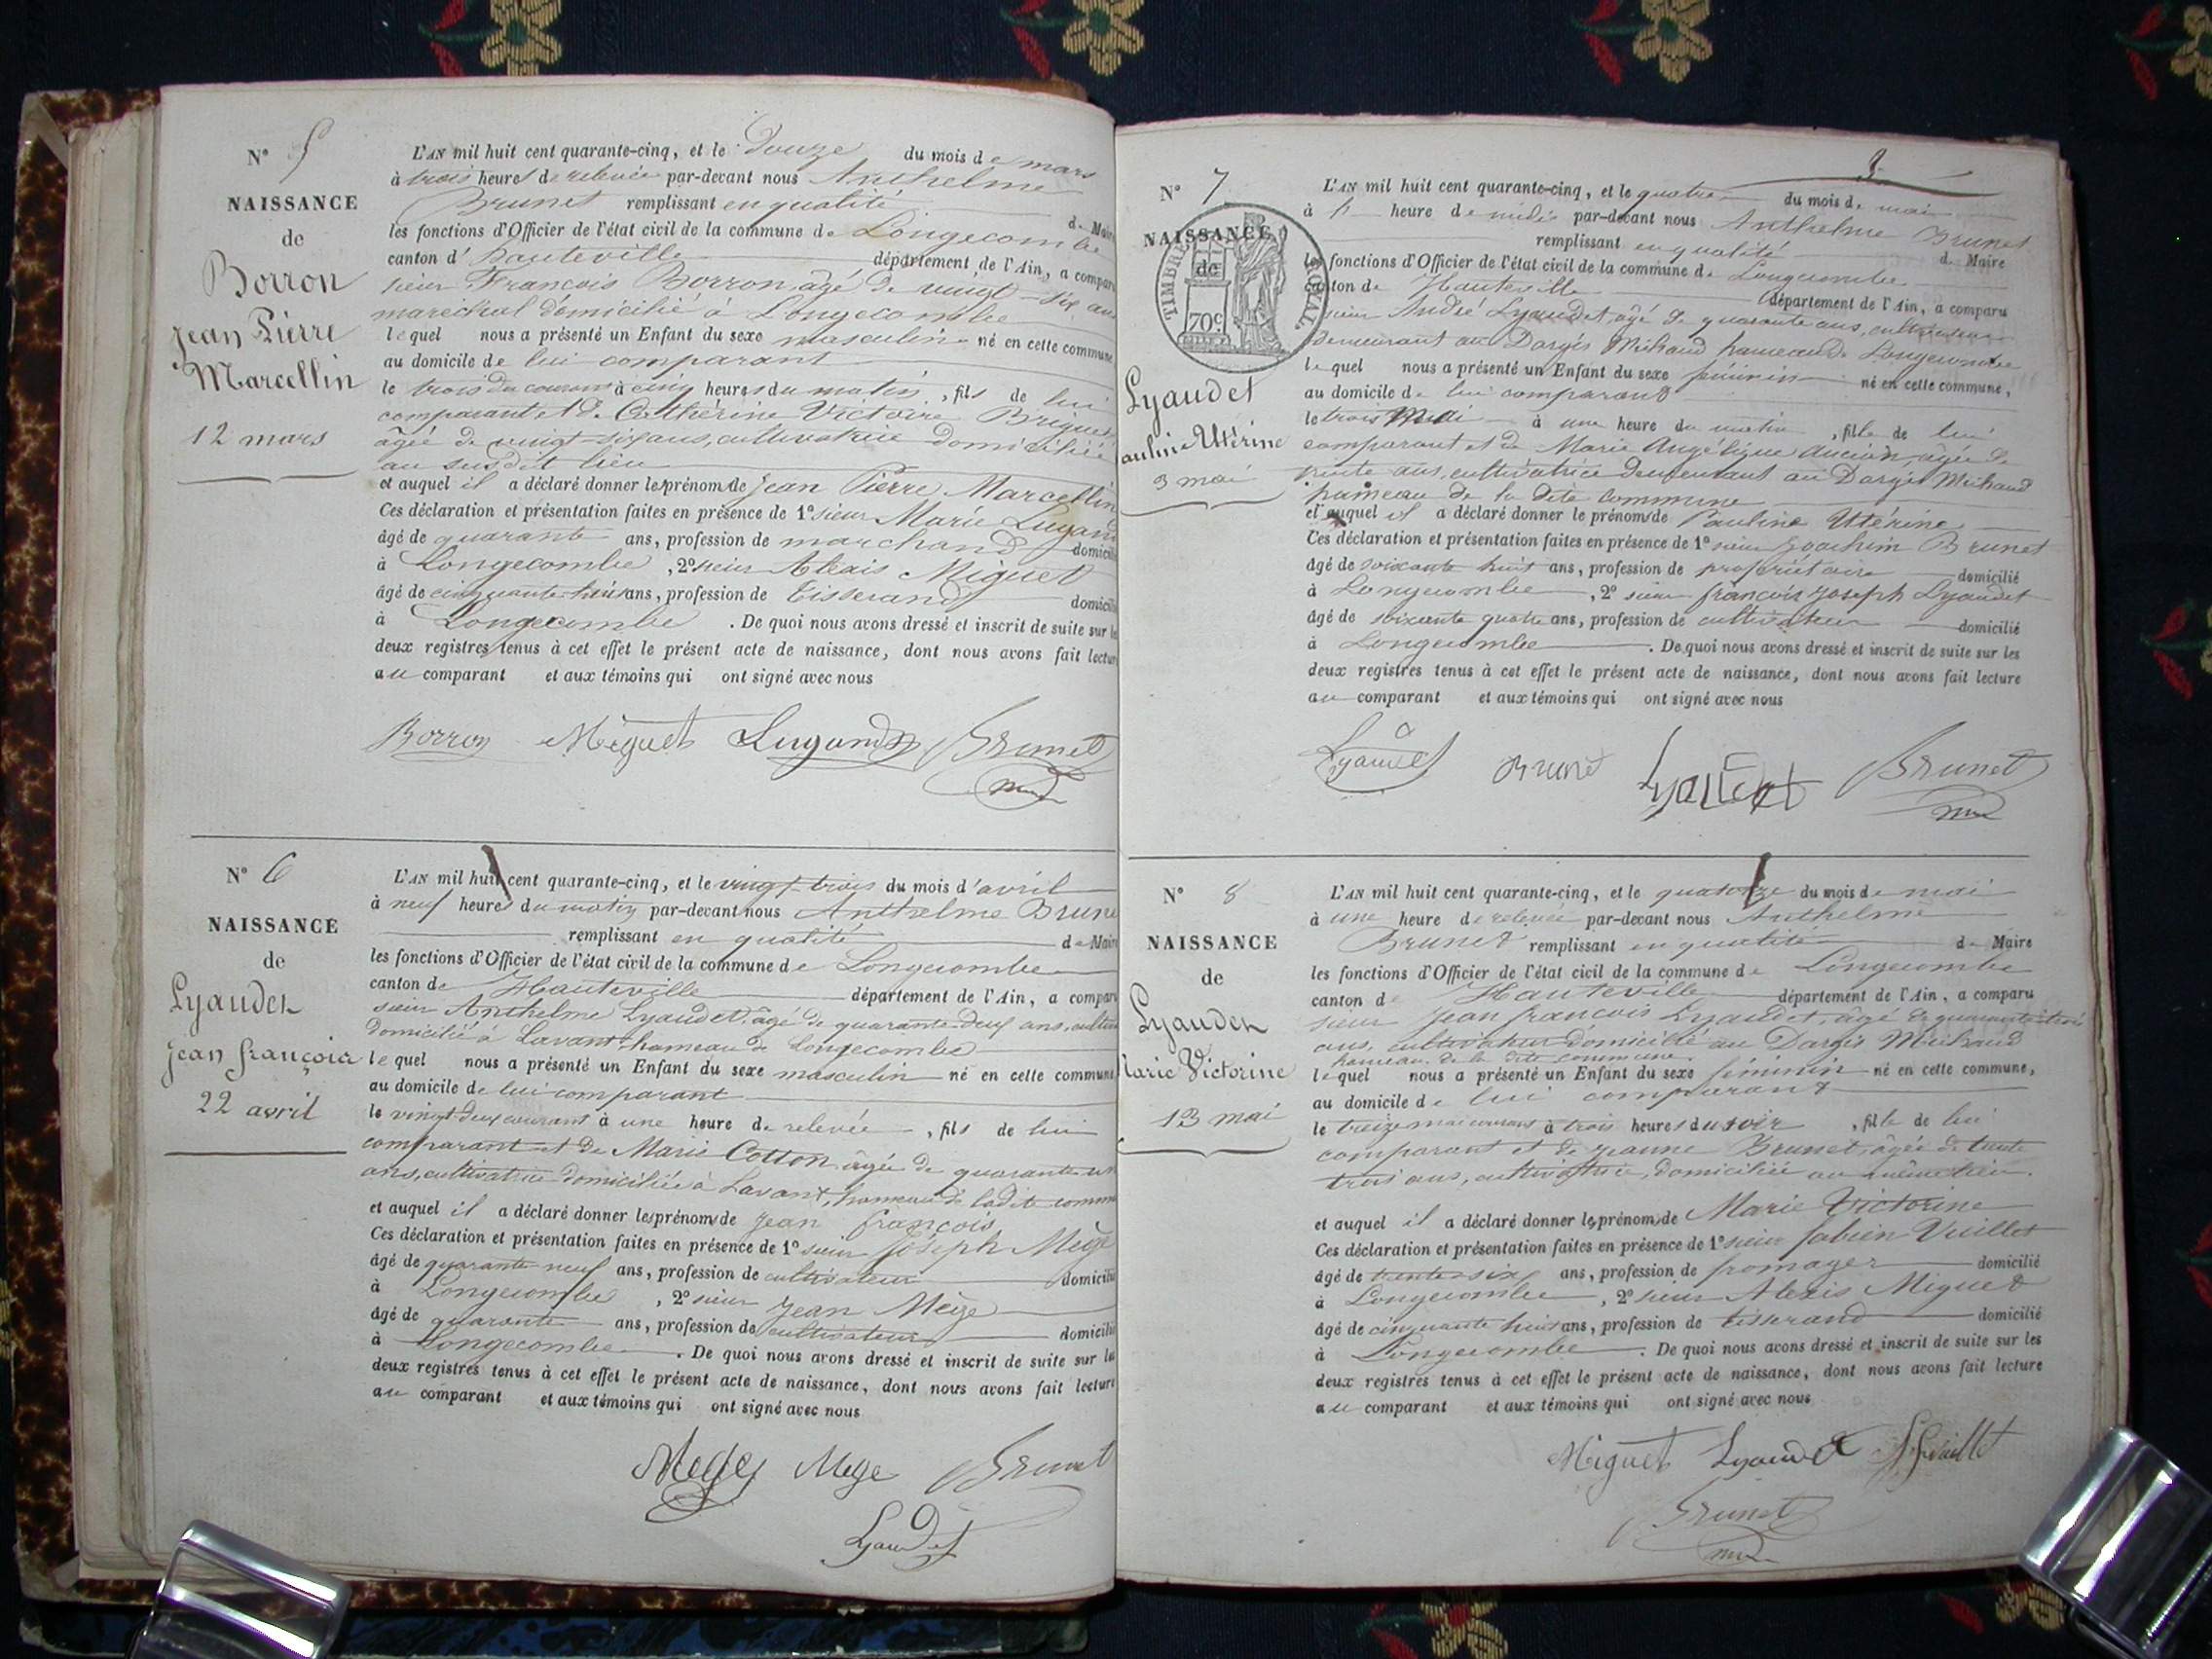 N° 5
NAISSANCE
de
Borron
Jean Pierre
Marcellin
12 mars
L'AN mil huit cent quarante-cinq, et le Douze du mois de mars
à trois heures de relevée par-devant nous Anthelme
Brunet remplissant en qualité de Maire
les fonctions d'Officier de l'état civil de la commune de Longecombe
canton d'hauteville département de l'Ain, a comparu
sieur François Borron, agé de vingt-six ans
maréchal domicilié à Longecombe
lequel nous a présenté un Enfant du sexe masculin né en cette commune
au domicile de lui comparant
le trois du courant à cinq heures du matin, fils de lui
comparant et de Cathérine Victoire
âgée de vingt-six ans, cultivatrice domiciliée
au susdit lieu
et auquel il a déclaré donner les prénoms de Jean Pierre Marcellin
Ces déclaration et présentation faites en présence de 1° sieur Marie Lugand
âgé de quarante ans, profession de marchand domicilié
à Longecombe, 2° sieur Alexis Miguet
âgé de cinquante-huit ans, profession de Tisserand domicilié
à Longecombe. De quoi nous avons dressé et inscrit de suite sur les
deux registres tenus à cet effet le présent acte de naissance, dont nous avons fait lecture
au comparant et aux témoins qui ont signé avec nous
Borron Miguet Lugand Brunet
N° 6
NAISSANCE
de
Lyaudet
Jean françois
22 avril
L'AN mil huit cent quarante-cinq, et le vingt-trois du mois d'avril
à neuf heures du matin par-devant nous Anthelme Brunet
remplissant en qualité de Maire
les fonctions d'Officier de l'état civil de la commune de Longecombe
canton de Hauteville département de l'Ain, a comparu
sieur Anthelme Lyaudet, âgé de quarante-deux ans, cultiv
domicilié à Lavant hameau de Longecombe
lequel nous a présenté un Enfant du sexe masculin né en cette commune
au domicile de lui comparant
le vingt-deux courant à une heure de relevée, fils de lui
comparant et de Marie Cotton âgée de quarante un
ans, cultivatrice domiciliée à Lavant, hameau de ladite commune
et auquel il a déclaré donner les prénoms de Jean françois
Ces déclaration et présentation faites en présence de 1° sieur Joseph Mège
âgé de quarante-neuf ans, profession de cultivateur domicilié
à Longecombe, 2° sieur Jean Mège
âgé de quarante ans, profession de cultivateur domicilié
à Longecombe. De quoi nous avons dressé et inscrit de suite sur les
deux registres tenus à cet effet le présent acte de naissance, dont nous avons fait lecture
au comparant et aux témoins qui ont signé avec nous
Mege Mege Brunet
Lyaudet
3
N° 7
NAISSANCE
de
TIMBRE ROYAL
70c
Lyaudet
auline Utérine
3 mai
L'AN mil huit cent quarante-cinq, et le quatre du mois de mai
à heure de midi par-devant nous Anthelme Brunet
remplissant en qualité de Maire
les fonctions d'Officier de l'état civil de la commune de Longecombe
canton de Hauteville département de l'Ain, a comparu
sieur André Lyaudet, âgé de quarante ans, cultivateur
demeurant au Dargis Michaud hameau de Longecombe
lequel nous a présenté un Enfant du sexe féminin né en cette commune,
au domicile de lui comparant
le trois Mai à une heure du matin, fille de lui
comparant et de Marie Angélique Ancian, agée de
trente ans, cultivatrice demeurant au Dargis Michaud
hameau de la dite commune
et auquel il a déclaré donner le prénoms de Pauline Utérine
Ces déclaration et présentation faites en présence de 1° sieur Joachim Brunet
âgé de soixante huit ans, profession de propriétaire domicilié
à Longecombe, 2° sieur françois joseph Lyaudet
âgé de soixante quatre ans, profession de cultivateur domicilié
à Longecombe. De quoi nous avons dressé et inscrit de suite sur les
deux registres tenus à cet effet le présent acte de naissance, dont nous avons fait lecture
au comparant et aux témoins qui ont signé avec nous
Lyaudet Brunet Lyaudet Brunet
N° 8
NAISSANCE
de
Lyaudet
Marie Victorine
13 mai
L'AN mil huit cent quarante-cinq, et le quatorze du mois de mai
à une heure de relevée par-devant nous Anthelme
Brunet remplissant en qualité de Maire
les fonctions d'Officier de l'état civil de la commune de Longecombe
canton d Hauteville département de l'Ain, a comparu
sieur Jean françois Lyaudet, âgé de quarante-trois
ans, cultivateur domicilié au Dargis Michaud
hameau de la dite commune
lequel nous a présenté un Enfant du sexe féminin né en cette commune,
au domicile de lui comparant
le treize mai courant à trois heures du soir, fille de lui
comparant et de Jeanne Brunet, âgée de trente
trois ans, cultivatrice, domiciliée au même lieu.
et auquel il a déclaré donner les prénoms de Marie Victorine
Ces déclaration et présentation faites en présence de 1° sieur fabien Vuillet
âgé de trente-six ans, profession de fromager domicilié
à Longecombe, 2° sieur Alexis Miguet
âgé de cinquante huit ans, profession de tisserand domicilié
à Longecombe. De quoi nous avons dressé et inscrit de suite sur les
deux registres tenus à cet effet le présent acte de naissance, dont nous avons fait lecture
au comparant et aux témoins qui ont signé avec nous
Miguet Lyaudet Vuillet
Brunet